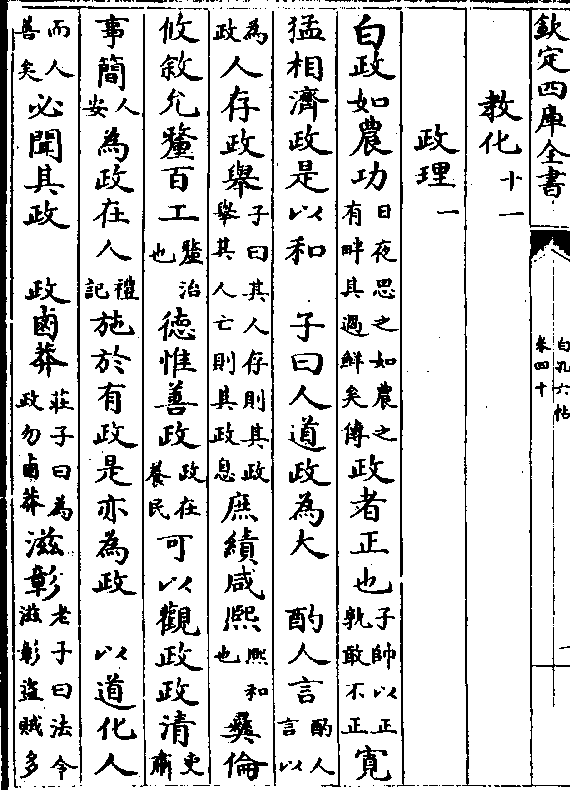 欽定四庫全書
白孔六帖
卷四十
一
教化十一
政理一
白政如農功日夜思之如農之有畔其過鮮矣傳政者正也子帥以正孰敢不正寛
猛相濟政是以和 子曰人道政為大 酌人言酌人言以
為政人存政舉子曰其人存則其政舉其人亡則其政息庶績咸熙熙和也彝倫
攸敘允釐百工釐治也德惟善政政在養民可以觀政政清吏
事簡人安為政在人禮記施於有政是亦為政 以道化人
而人善矣必聞其政 政鹵莽莊子曰為政勿鹵莽滋彰老子曰法令滋彰盜賊多